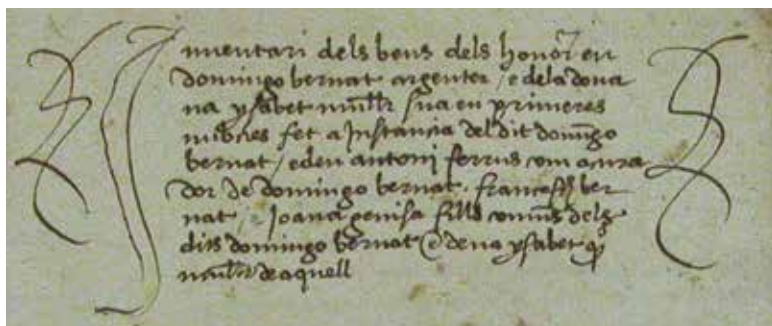 Inventari dels bens dels honor en
domingo bernat argenter / e dela dona
na ysabet mullr sua en primeres
nubcies fet a Instancia del dit domingo
bernat / e den antoni ferrus com a cura
dor de domingo bernat. francesch ber
nat / e Joana genisa fills comuns dels
dits domingo bernat e dena ysabet q̊
mullr de aquell